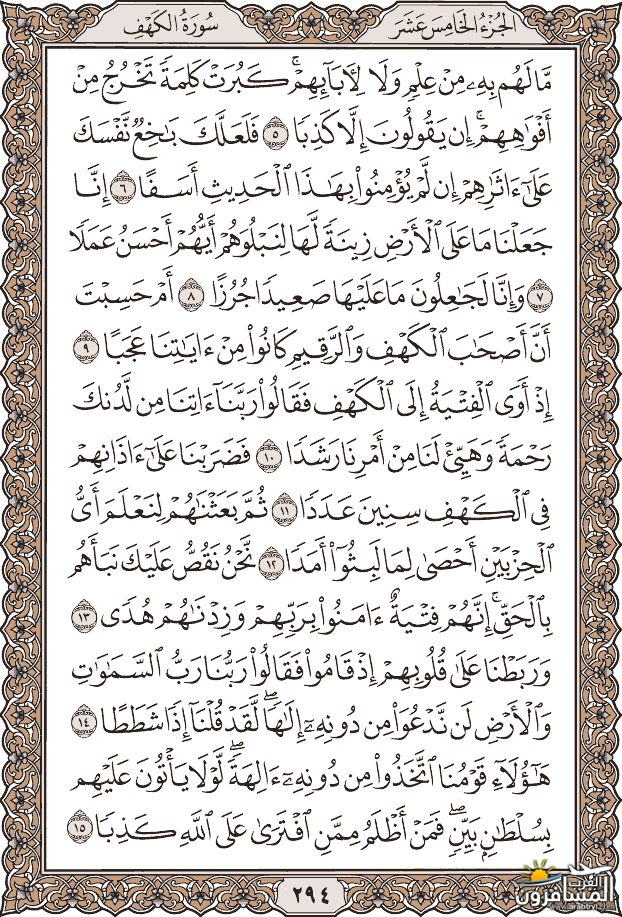 الجُزْءُ الخَامِسَ عَشَرَ
سُورَةُ الكَهْفِ
مَّا لَهُم بِهِۦ مِنْ عِلْمٍ وَلَا لِأٓبَآئِهِمْۚ كَبُرَتْ كَلِمَةً تَخْرُجُ مِنْ
أَفْوَٰهِهِمْۚ إِن يَقُولُونَ إِلَّا كَذِبًا ٥ فَلَعَلَّكَ بَٰخِعٌ نَّفْسَكَ
عَلَىٰٓ ءَاثَٰرِهِمْ إِن لَّمْ يُؤْمِنُوا۟ بِهَٰذَا ٱلْحَدِيثِ أَسَفًا ٦ إِنَّا
جَعَلْنَا مَا عَلَى ٱلْأَرْضِ زِينَةً لَّهَا لِنَبْلُوَهُمْ أَيُّهُمْ أَحْسَنُ عَمَلًا
٧ وَإِنَّا لَجَٰعِلُونَ مَا عَلَيْهَا صَعِيدًا جُرُزًا ٨ أَمْ حَسِبْتَ
أَنَّ أَصْحَٰبَ ٱلْكَهْفِ وَٱلرَّقِيمِ كَانُوا۟ مِنْ ءَايَٰتِنَا عَجَبًا ٩
إِذْ أَوَى ٱلْفِتْيَةُ إِلَى ٱلْكَهْفِ فَقَالُوا۟ رَبَّنَآ ءَاتِنَا مِن لَّدُنكَ
رَحْمَةً وَهَيِّئْ لَنَا مِنْ أَمْرِنَا رَشَدًا ١٠ فَضَرَبْنَا عَلَىٰٓ ءَاذَانِهِمْ
فِى ٱلْكَهْفِ سِنِينَ عَدَدًا ١١ ثُمَّ بَعَثْنَٰهُمْ لِنَعْلَمَ أَىُّ
ٱلْحِزْبَيْنِ أَحْصَىٰ لِمَا لَبِثُوٓا۟ أَمَدًا ١٢ نَّحْنُ نَقُصُّ عَلَيْكَ نَبَأَهُم
بِٱلْحَقِّۚ إِنَّهُمْ فِتْيَةٌ ءَامَنُوا۟ بِرَبِّهِمْ وَزِدْنَٰهُمْ هُدًى ١٣
وَرَبَطْنَا عَلَىٰ قُلُوبِهِمْ إِذْ قَامُوا۟ فَقَالُوا۟ رَبُّنَا رَبُّ ٱلسَّمَٰوَٰتِ
وَٱلْأَرْضِ لَن نَّدْعُوَا۟ مِن دُونِهِۦٓ إِلَٰهًاۖ لَّقَدْ قُلْنَآ إِذًا شَطَطًا ١٤
هَٰٓؤُلَآءِ قَوْمُنَا ٱتَّخَذُوا۟ مِن دُونِهِۦٓ ءَالِهَةًۖ لَّوْلَا يَأْتُونَ عَلَيْهِم
بِسُلْطَٰنٍۭ بَيِّنٍۖ فَمَنْ أَظْلَمُ مِمَّنِ ٱفْتَرَىٰ عَلَى ٱللَّهِ كَذِبًا ١٥
٢٩٤
العرب
المسافرون
www.arabtrvl.com